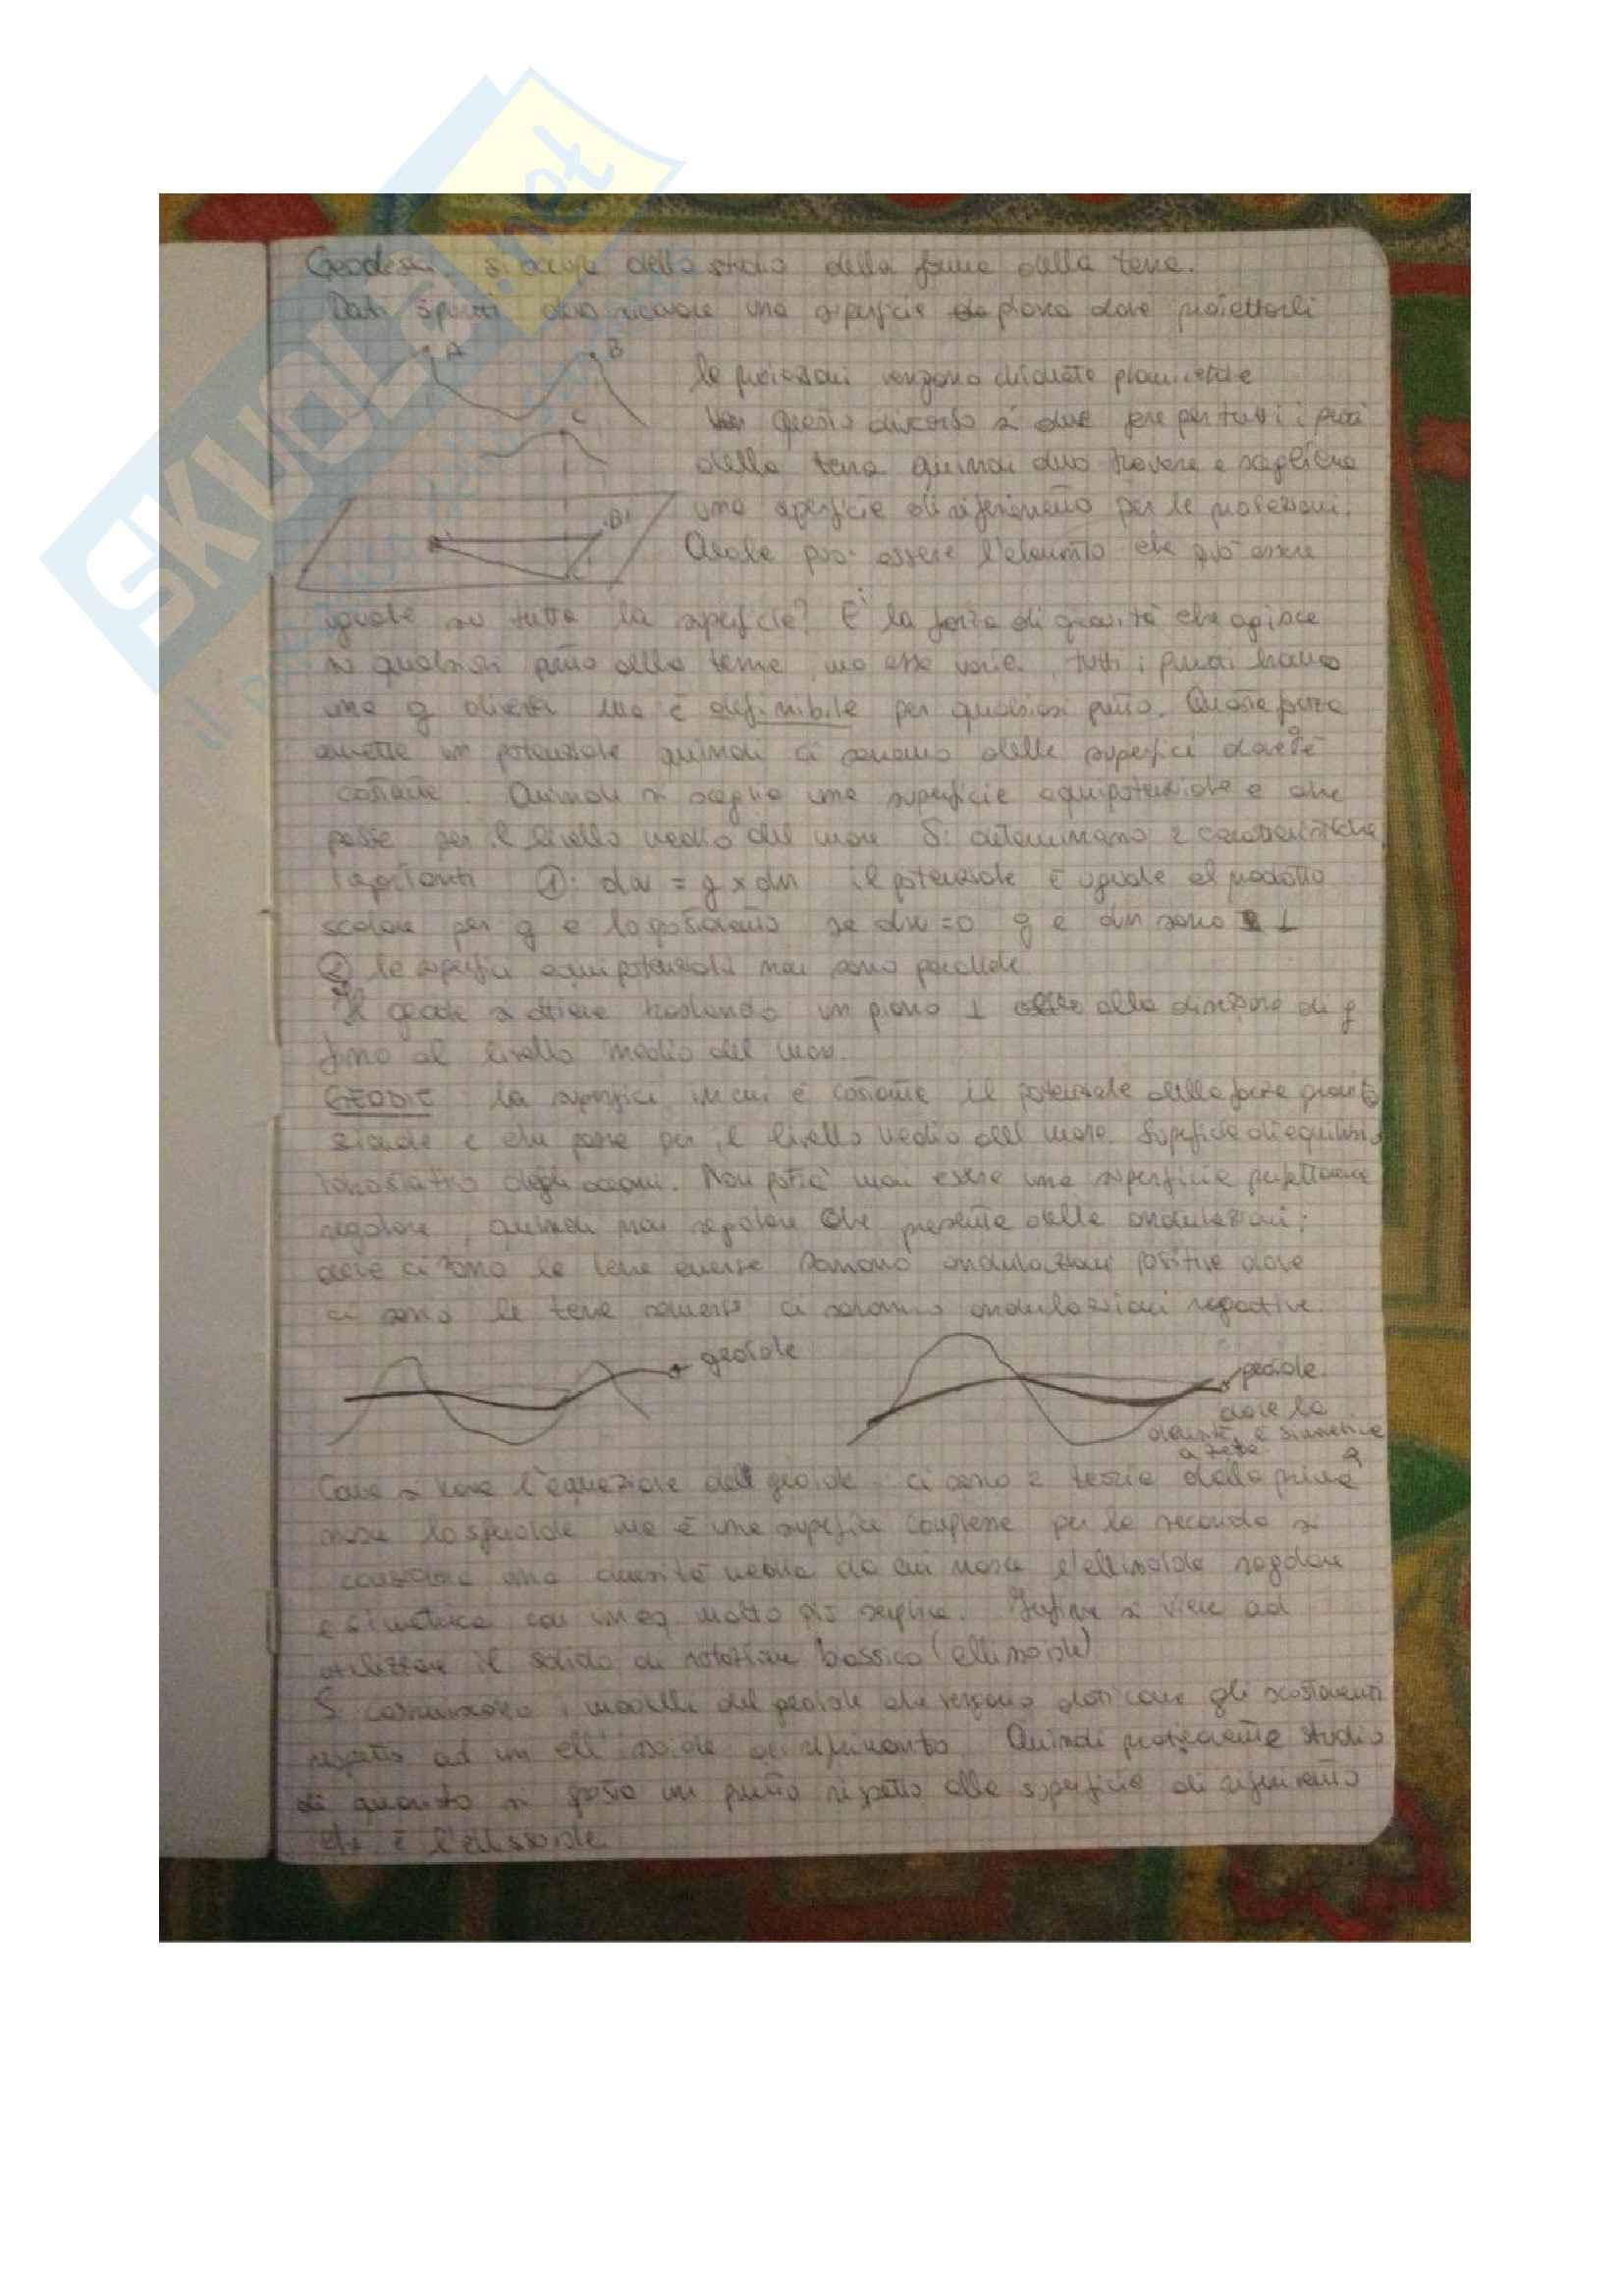 SKUOLA.net
Geodesia. si occupa dello studio della forma della terra.
Dati 3 punti devo ricavare una superficie piana dove proiettarli
A B
le proiezioni vengono chiamate planimetrie
C
questo discorso si deve fare per tutti i punti
della terra quindi devo trovare e scegliere
una superficie di riferimento per le proiezioni.
B'
Quale può essere l'elemento che può essere
C'
uguale su tutta la superficie? È la forza di gravità che agisce
su qualsiasi punto della terra, ma essa varia. tutti i punti hanno
una g diversa ma è definibile per qualsiasi punto. Questa forza
ammette un potenziale quindi ci saranno delle superfici dove g è
costante. Quindi si sceglie una superficie equipotenziale e che
passe per il livello medio del mare Si determinano 2 caratteristiche
importanti ①: dw = g x dn il potenziale è uguale al prodotto
scalare per g e lo spostamento se dw = 0 g e dn sono ⊥
② le superfici equipotenziali non sono parallele
Il geoide si ottiene traslando un piano ⊥ alla direzione di g
fino al livello medio del mare.
GEOIDE la superfici in cui è costante il potenziale della forza gravita
zionale e che passa per il livello medio del mare. Superficie di equilibrio
degli oceani. Non potrà mai essere una superficie perfettamente
regolare, quindi non regolare che presenta delle ondulazioni;
dove ci sono le terre emerse saranno ondulazioni positive dove
ci sono le terre sommerse ci saranno ondulazioni negative.
geoide
geoide
dove la
densità è simmetrica
Come si trova l'equazione del geoide. ci sono 2 teorie dalla prima
nasce lo sferoide ma è una superficie complessa per la seconda si
considera una densità media da cui nasce l'ellissoide regolare
e simmetrica con un eq. molto più semplice. Infine si viene ad
utilizzare il solido di rotazione biassico (ellissoide)
Si costruiscono i modelli del geoide che vengono dati come gli scostamenti
rispetto ad un ellissoide di riferimento. Quindi praticamente studio
di quanto si sposta un punto rispetto alla superficie di riferimento
che è l'ellissoide